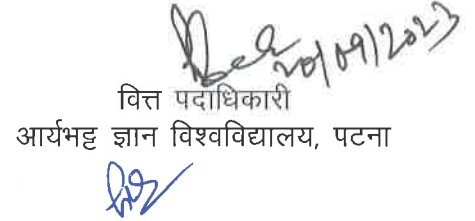 20/09/2023
वित्त पदाधिकारी
आर्यभट्ट ज्ञान विश्वविद्यालय, पटना